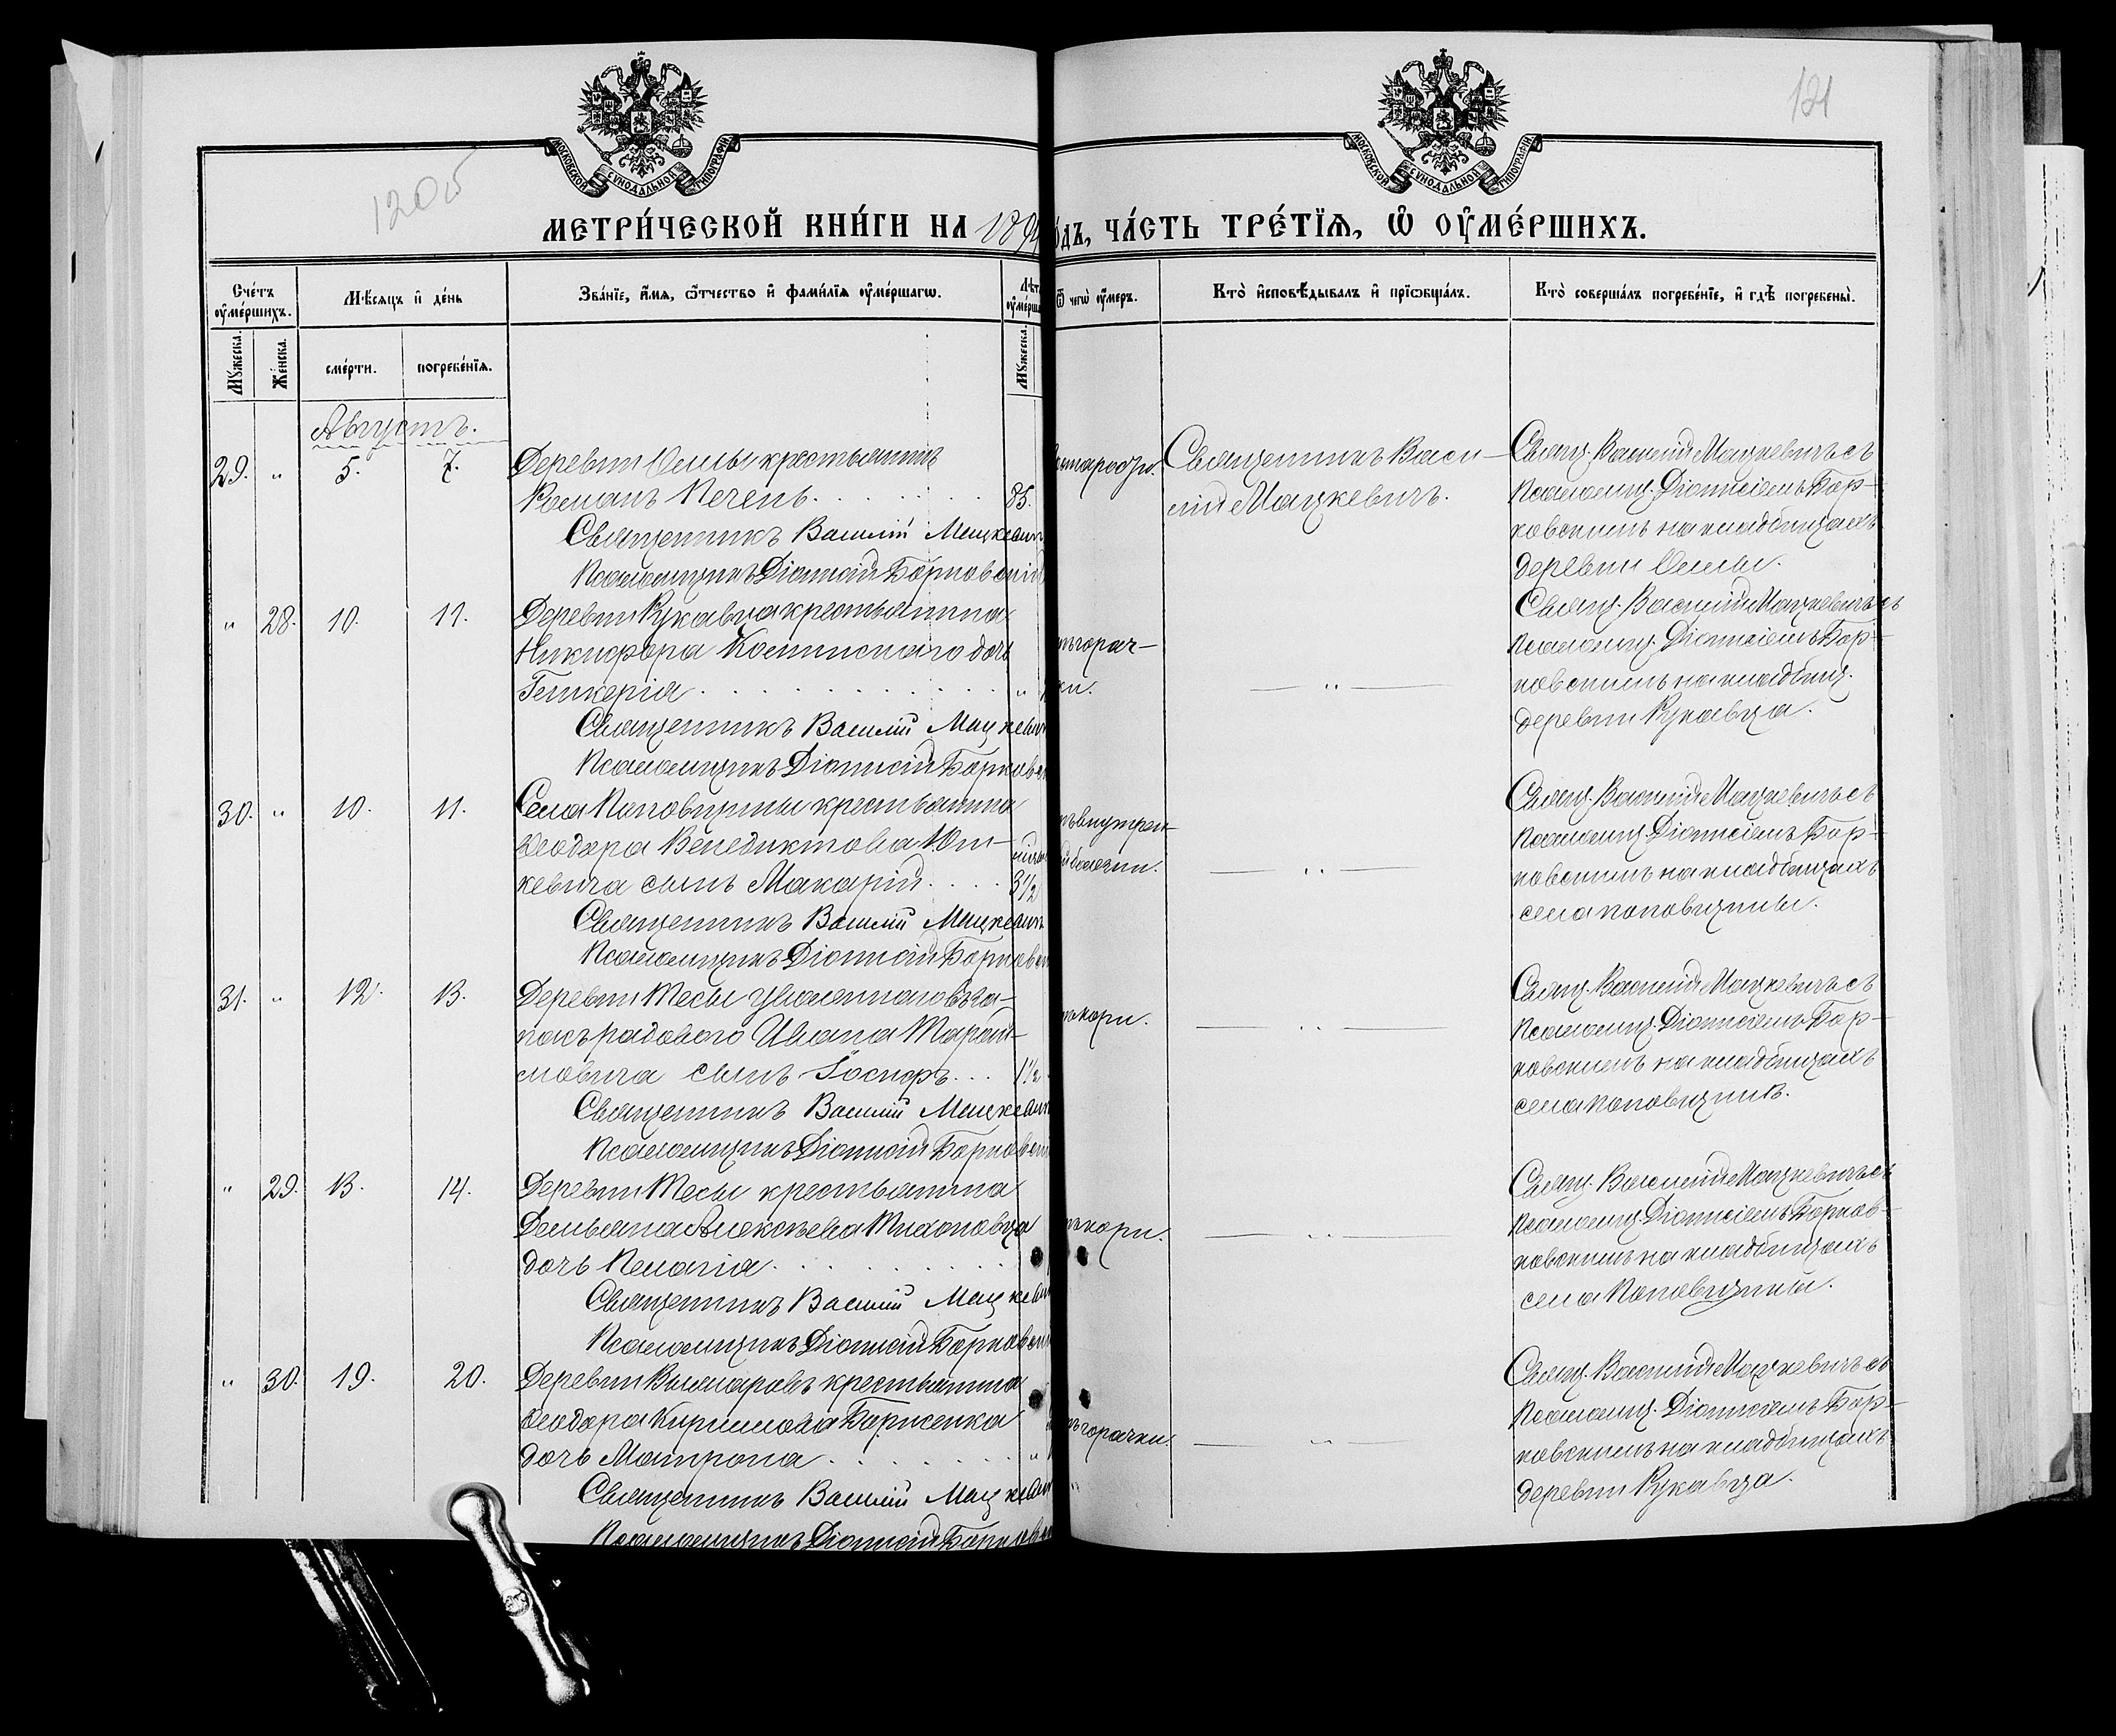 МОСКОВСКОЙ СѴНОДАЛЬНОЙ ТИПОГРАФІИ
МОСКОВСКОЙ СѴНОДАЛЬНОЙ ТИПОГРАФІИ
121
МЕТРИ́ЧЕСКОЙ КНИ́ГИ НА 189
О́ДЪ, ЧА́СТЬ ТРЕ́ТЇѦ, Ѿ ОУ҆МЕ́РШИХЪ.
Сче́тъ оу҆ме́ршихъ.
Мѣ́сяцъ и҆ де́нь
Зва́нїе, и҆́мѧ, ѻ҆́тчество и҆ фами́лїѧ оу҆ме́ршагѡ.
Ѿ чегѡ̀ оу҆́меръ.
Кто̀ и҆сповѣ́дывалъ и҆ прїѡбща́лъ.
Кто̀ соверша́лъ погребе́нїе, и҆ гдѣ̀ погребены̀.
Мꙋ́жеска.
Же́нска.
сме́рти.
погребе́нїѧ.
Мꙋ́жеска.
Августъ.
29. " 5. 7. Деревни крестьянинъ
Романъ Печень. 85.
Священникъ Василій Мацкевич
Псаломщикъ Діонисій Борковскій
старости. Священникъ Васи-
лій Мацкевичъ.
Свящ. Василій Мацкевичъ съ
Псаломщ. Діонисіемъ Бор-
ковскимъ на кладбищахъ
деревни
" 28. 10. 11. Деревни Рукавца крестьянина
Никифора дочь
Гликерія "
Священникъ Василій Мацкевич
Псаломщикъ Діонисій Борковс
горяч-
ки. — " —
Свящ. Василій Мацкевичъ съ
Псаломщ. Діонисіемъ Бор-
ковскимъ на кладбищ.
деревни Рукавца.
30. " 10. 11. Села Поповщины крестьянина
Ѳеодора Венедиктова Юш-
кевича сынъ Макарій 3½
Священникъ Василій Мацкевич
Псаломщикъ Діонисій Борковс
внутрен-
й болезни. — " —
Свящ. Василій Мацкевичъ съ
Псаломщ. Діонисіемъ Бор-
ковскимъ на кладбищахъ
села Поповщины.
31. " 12. 13. Деревни Тесы уволеннаго въ за-
пасъ рядового Ивана
сынъ Іосифъ 1½
Священникъ Василій Мацкевич
Псаломщикъ Діонисій Борковс
кори. — " —
Свящ. Василій Мацкевичъ съ
Псаломщ. Діонисіемъ Бор-
ковскимъ на кладбищахъ
села Поповщины.
" 29. 13. 14. Деревни Тесы крестьянина
Демьяна Алексѣева Тихоновца
дочь Пелагія
Священникъ Василій Мацкевич
Псаломщикъ Діонисій Борковс
кори. — " —
Свящ. Василій Мацкевичъ съ
Псаломщ. Діонисіемъ Борков-
ковскимъ на кладбищахъ
села Поповщины.
" 30. 19. 20. Деревни крестьянина
Ѳеодора Кириллова Борисенка
дочь Матрона "
Священникъ Василій Мацкевич
Псаломщикъ Діонисій Борковс
горячки. — " —
Свящ. Василій Мацкевичъ съ
Псаломщ. Діонисіемъ Бор-
ковскимъ на кладбищахъ
деревни Рукавца.